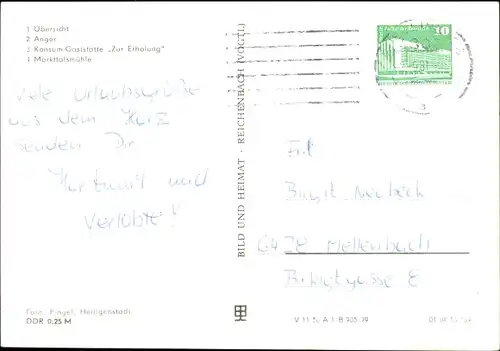 1 Übersicht
2 Anger
3 Konsum-Gaststätte „Zur Erholung"
4 Märkttalsmühle
10
Viele Urlaubsgrüße
aus dem Harz
senden Dir
Hartmut und
Verlobte!
BILD UND HEIMAT · REICHENBACH (VOGTL)
Frl.
Birgit
6428 Mellenbach
8
Foto: Pingel, Heiligenstadt
DDR 0,25 M